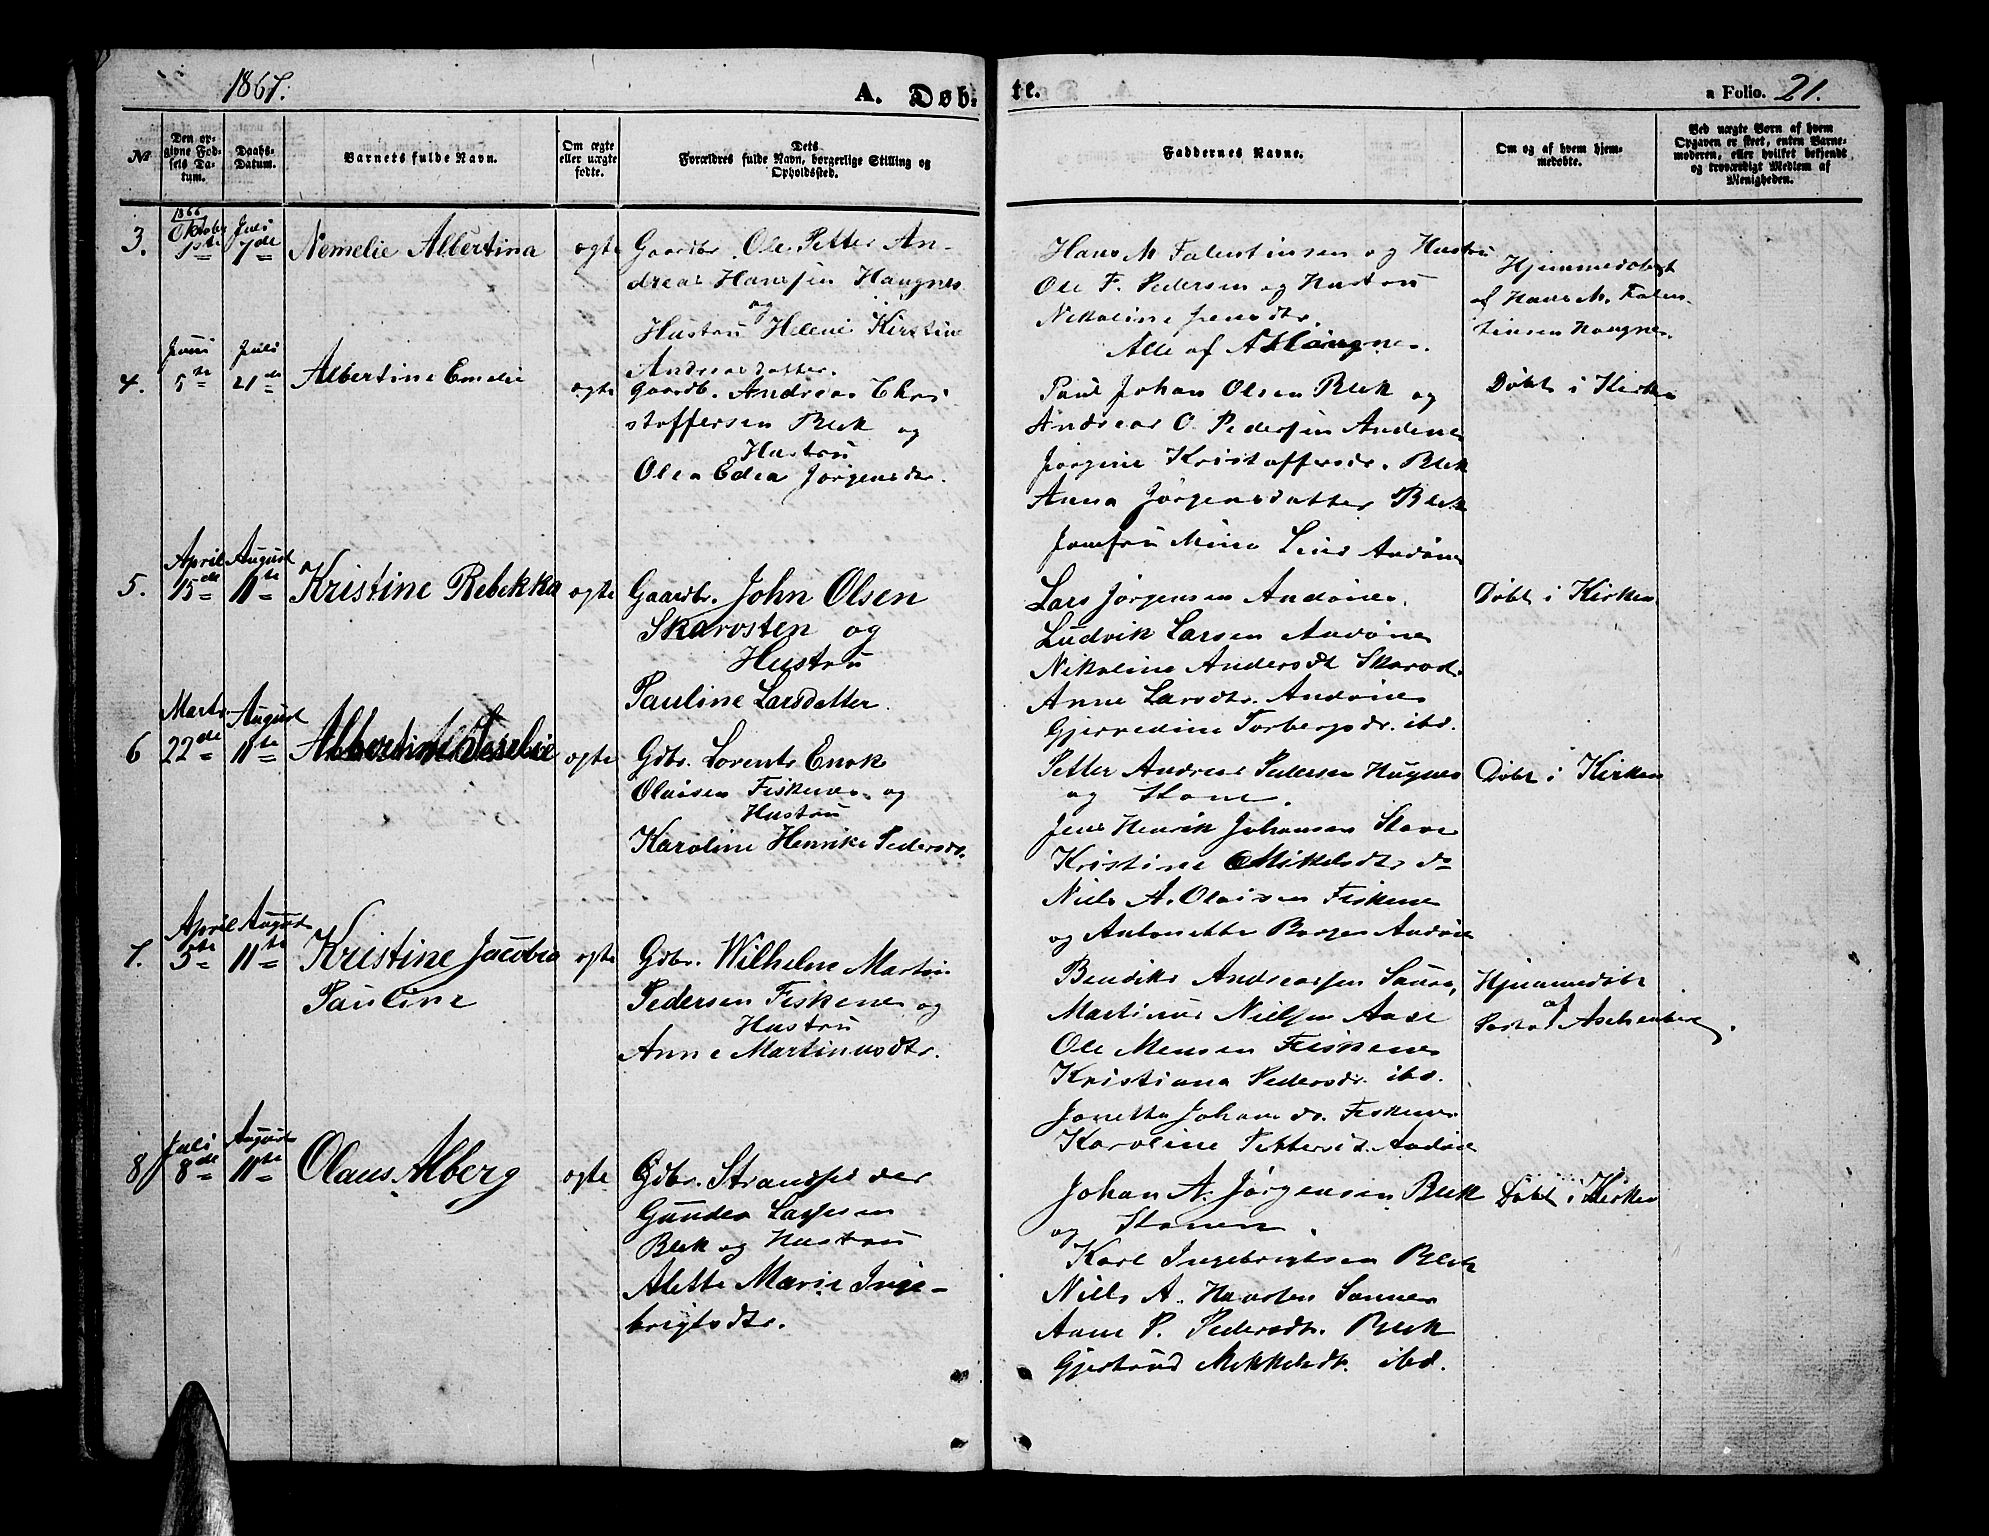 1867.
A. Døb-
te.
a Folio. 21.
№
Den op-
givne Fød-
sels Da-
tum.
Daabs-
Datum.
Barnets fulde Navn.
Om ægte
eller uægte
fødte.
Dets
Forældres fulde Navn, borgerlige Stilling og
Opholdssted.
Faddernes Navne.
Om og af hvem hjem-
medøbte.
Ved uægte Børn af hvem
Opgaven er skeet, enten Barne-
moderen, eller hvilket bekjendt
og troværdigt Medlem af
Menigheden.
3.
1866
Oktober
1ste
Juli
7de
Nemelie Albertina
ægte
Gaardbr. Ole Petter An-
dreas Hanssen Haugnes
og
Hustru Helene Kirstine
Andreasdatter.
Hans M. Falentinsen og Hustru
Ole F. Pedersen og Hustru
Nikoline Jensdtr.
Alle af Haugnes.
Hjemmedøbt
af Hans M. Falen-
tinsen Haugnes.
4.
Juni
5te
Juli
21de
Albertine Emelie
ægte
Gaardb. Andreas Chri
stoffersen Bleik og
Hustru
Olea Edea Jørgensdtr.
Paul Johan Olsen Bleik og
Andreas O. Pedersen Andenes
Jørgine Kristoffersdr. Bleik
Anna Jørgensdatter Bleik
Jomfru Mina Andønes
Døbt i Kirken
5.
April
15de
August
11te
Kristine Rebekka
ægte
Gaardbr. John Olsen
Skarosten og
Hustru
Pauline Larsdatter.
Lars Jørgensen Andønes.
Ludvik Larsen Andønes
Nikoline Andersdt Skarost.
Anne Larsdtr. Andønes
Gjervedine Torbergsdr. ibd.
Døbt i Kirken
6
Marts
22de
August
11te
Albertine
ægte
Gdbr. Lorents Enok
Olaisen Fiskenes og
Hustru
Karoline Henrike Pedersdt.
Petter Andreas Pedersen Haugnes
og Kone.
Jens Henrik Johansen Stave
Kristine Mikelsdtr do
Niels A. Olaisen Fiskenes
og Antonette Borger Andønes
Døbt i Kirken
7.
April
5te
August
11te
Kristine Jacobia
Pauline
ægte
Gdbr. Wilhelm Martin
Pedersen Fiskenes og
Hustru
Anne Martinusdtr.
Bendiks Andreassen Saura,
Martinus Nielsen Aase
Ole Monsen Fiskenes
Kristiana Pedersdr. ibd.
Jonetta Johansdr. Fiskenes
Karoline Pettersdt. Andønes
Hjemmedøbt
af
Pastor Aschenberg.
8
Juli
8de
August
11te
Olaus Alberg
ægte
Gdbr. Strandsidder
Gunder Larssen
Bleik og Hustru
Alette Marie Inge-
brigtsdtr.
Johan A. Jørgensen Bleik
og Konen.
Karl Ingebrigtsen Bleik
Niels A. Hansen
Anne P. Pedersdt. Bleik
Gjertrud Mikkelsdt. ibd.
Døbt i Kirken